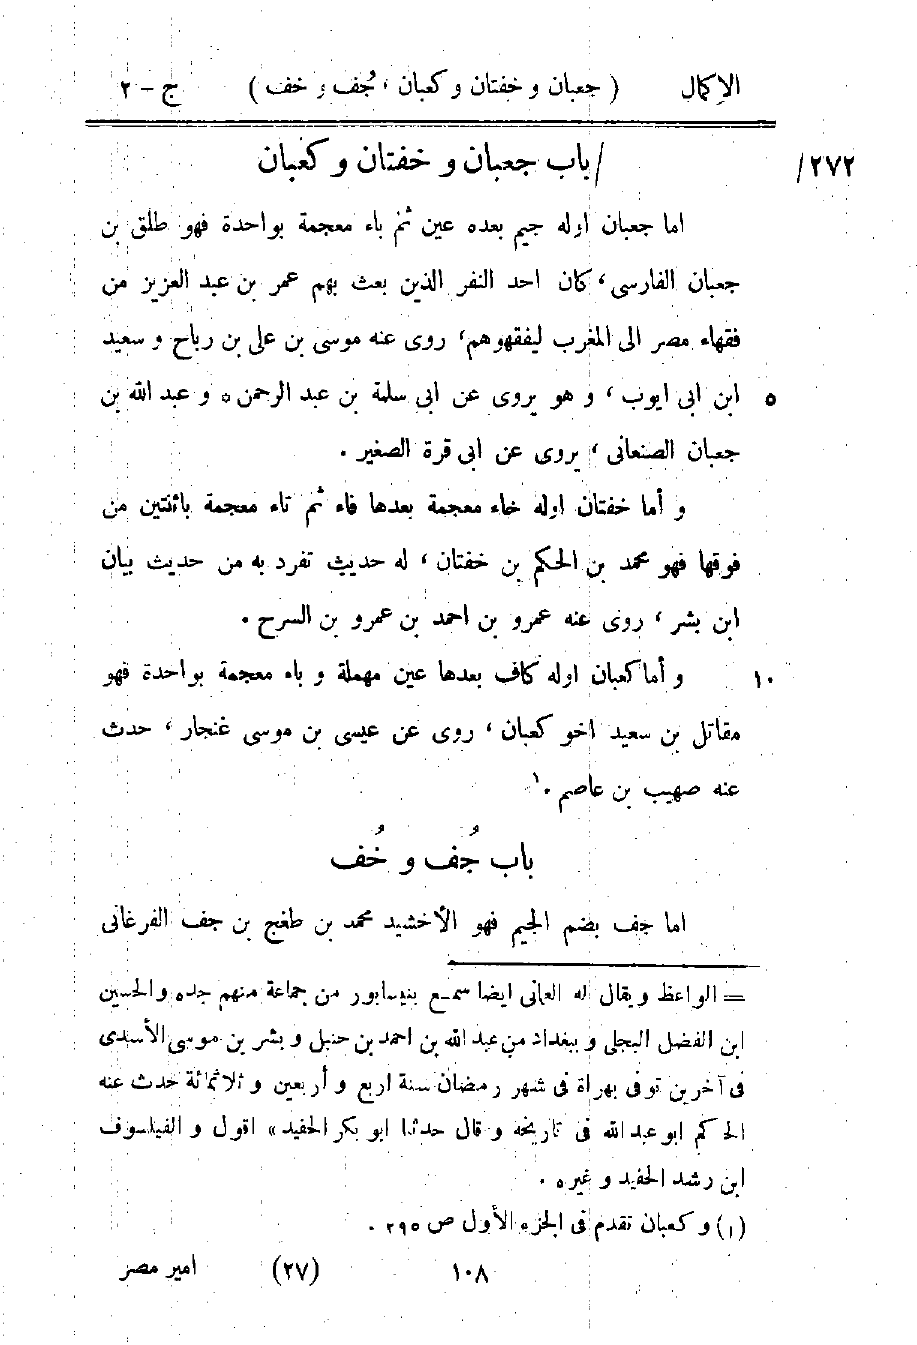 الإكمال ( جعبان و خفتان و كعبان ، جُف و خف ) ج - ٢
٢٧٢/ /باب جعبان و خفتان و كعبان
اما جعبان اوله جيم بعده عين ثم باء معجمة بواحدة فهو طلق بن
جعبان الفارسى ، كان احد النفر الذين بعث بهم عمر بن عبد العزيز من
فقهاء مصر الى المغرب ليفقهوهم ، روى عنه موسى بن على بن رباح و سعيد
٥ ابن ابى ايوب ، و هو يروى عن ابى سلمة بن عبد الرحمن ٥ و عبد الله بن
جعبان الصنعانى ، يروى عن ابى قرة الصغير .
و أما خفتان اوله خاء معجمة بعدها فاء ثم تاء معجمة باثنتين من
فوقها فهو محمد بن الحكم بن خفتان ، له حديث تفرد به من حديث بيان
ابن بشر ، روى عنه عمرو بن احمد بن عمرو بن السرح .
١٠ و أما كعبان اوله كاف بعدها عين مهملة و باء معجمة بواحدة فهو
مقاتل بن سعيد اخو كعبان ، روى عن عيسى بن موسى غنجار ، حدث
عنه صهيب بن عاصم .١
باب جُف و خُف
اما جف بضم الجيم فهو الأخشيد محمد بن طغج بن جف الفرغانى
= الواعظ و يقال له العمانى ايضا سمع بنيسابور من جماعة منهم جده و الحسين
ابن الفضل البجلى و ببغداد من عبد الله بن احمد بن حنبل و بشر بن موسى الأسدى
فى آخرين توفى بهراة فى شهر رمضان سنة اربع و أربعين و ثلاثمائة حدث عنه
الحاكم ابو عبد الله فى تاريخه و قال حدثنا ابو بكر الحفيد» اقول و الفيلسوف
ابن رشد الحفيد و غيره .
(١) و كعبان تقدم فى الجزء الأول ص ٢٩٥ .
١٠٨ (٢٧) امير مصر